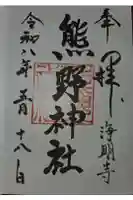 奉拝
海明寺
熊野神社
令和八年五月十八日